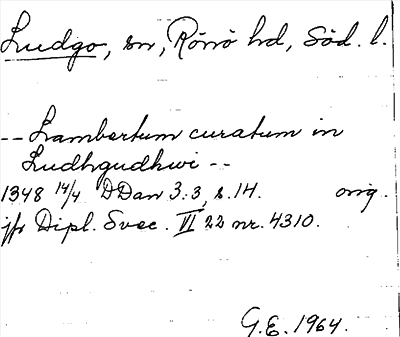 Ludgo, sn, Rönö hd, Söd. l.
-- Lambertum curatum in
Ludhgudhwi --
1348 14/4 DDan 3:3, s. 14. orig.
jfr Dipl. Svec. VI 22 nr. 4310.
G.E. 1964.